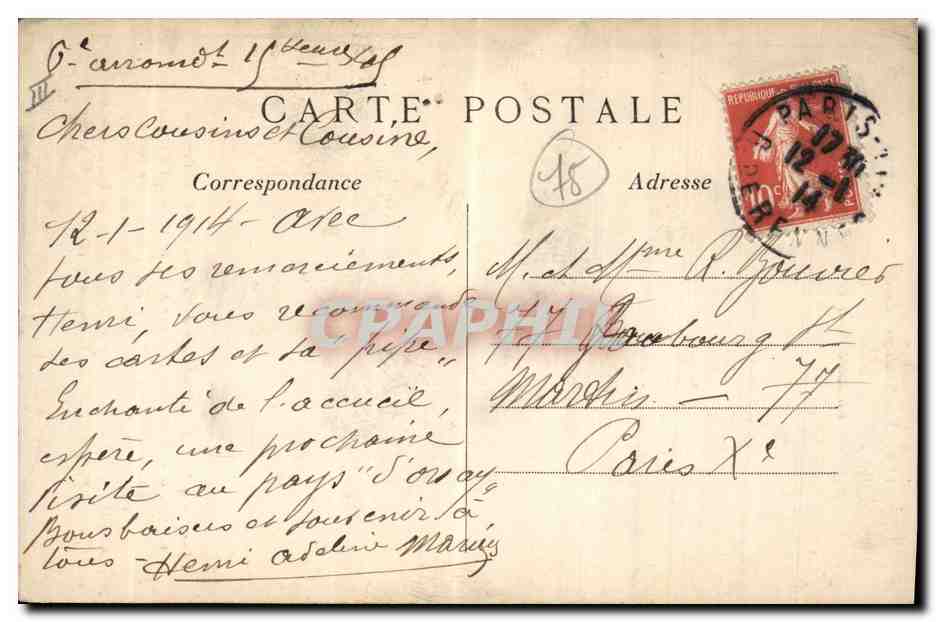 6e arrondt 15
III
CARTE POSTALE
Chers Cousins et Cousine,
Correspondance
12-1-1914 - avec
tous ses remerciements,
Henri, vous recommande
ses cartes et sa "pipe"
Enchanté de l'accueil,
espère, une prochaine
visite au pays "d'orsay"
Bons baisers et souvenir à
tous - Henri Adeline Marius
75
Adresse
REPUBLIQUE FRANÇAISE
10c
POSTES
PARIS
12-1
14
R. DERENNES
M. et Mme R. Bouvier
77 Faubourg St
Martin - 77
Paris Xe
CPAPHIL